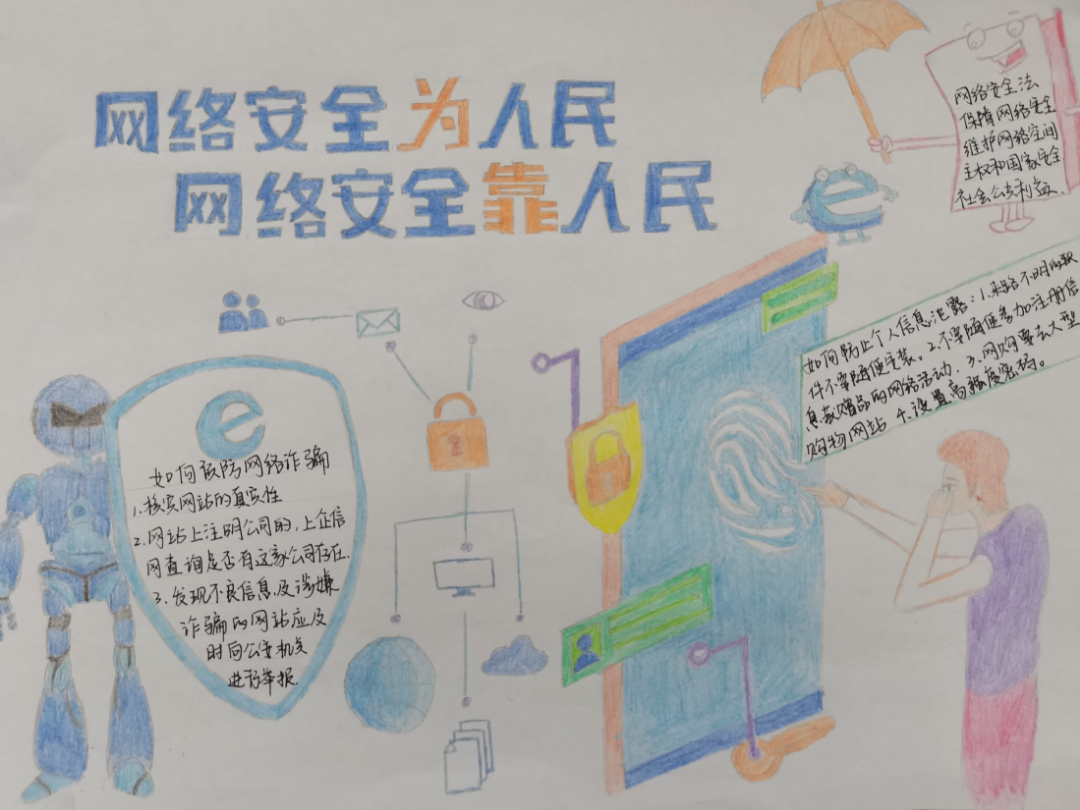 网络安全为人民
网络安全靠人民
网络安全法
保障网络安全
维护网络空间
主权和国家安全
社会公共利益.
如何防止个人信息泄露:1.来路不明的软
件不要随便安装。2.不要随便参加注册信
息获赠品的网络活动.3.网购要去大型
购物网站 4.设置高强度密码。
e
如何预防网络诈骗
1.核实网站的真实性
2.网站上注明公司的,上企信
网查询是否有这家公司存在.
3.发现不良信息及涉嫌
诈骗的网站应及
时向公安机关
进行举报.